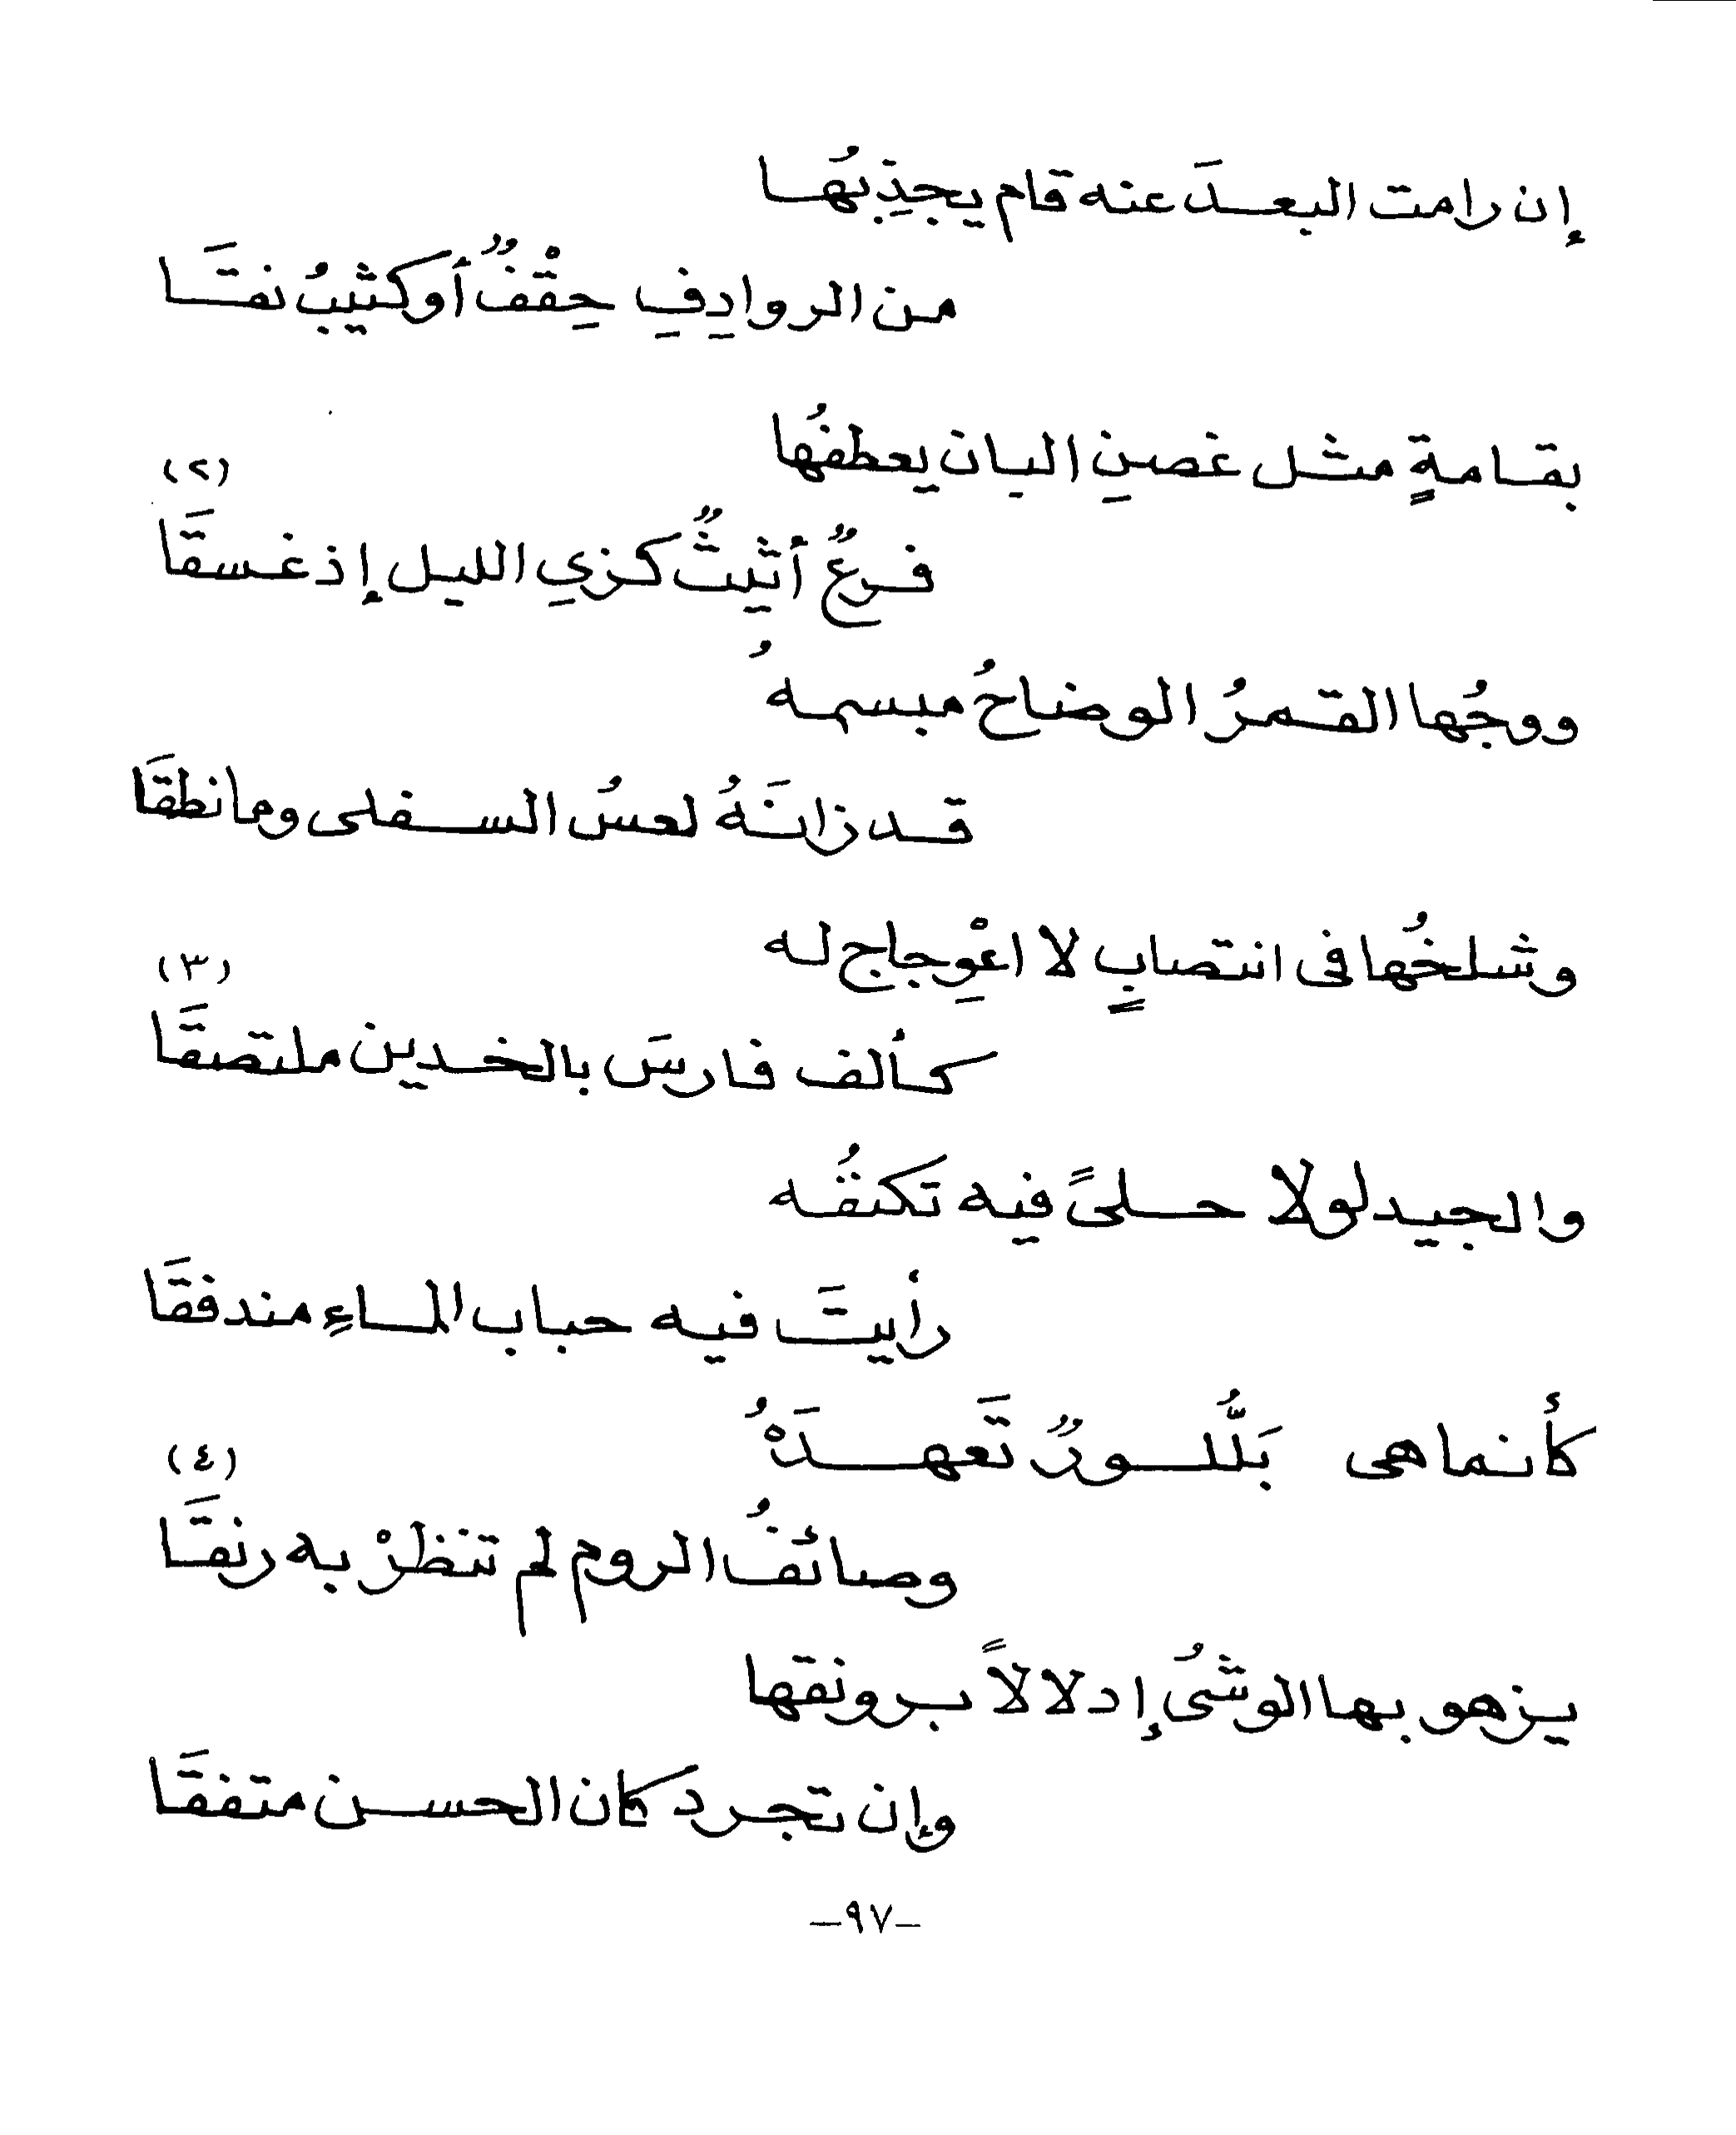 إن رامت البعدَ عنه قام يجذِبُها
من الروادِفِ حِقْفٌ أو كثيبُ نقَا
بقامةٍ مثل غصنِ البان يعطفُها
(٢)
فرعٌ أثيثٌ كزيِ الليل إذ غسقَا
ووجُها القمرُ الوضاحُ مبسمهُ
قد زانَهُ لعسُ السفلى وما نطقَا
وشلخُها فى انتصابٍ لا اعْوِجاج له
(٣)
كألف فارسَ بالخدين ملتصقَا
والجيد لولا حلىً فيه تكنفُه
رأيتَ فيه حباب الماءِ مندفقَا
كأنما هى بَلُّلورٌ تَعهدَهُ
(٤)
وصائفُ الروم لم تنظرْ به رنقَا
يزهو بها الوشىُ إدلالاً برونقها
وإن تجرد كان الحسن متفقَا
-٩٧-